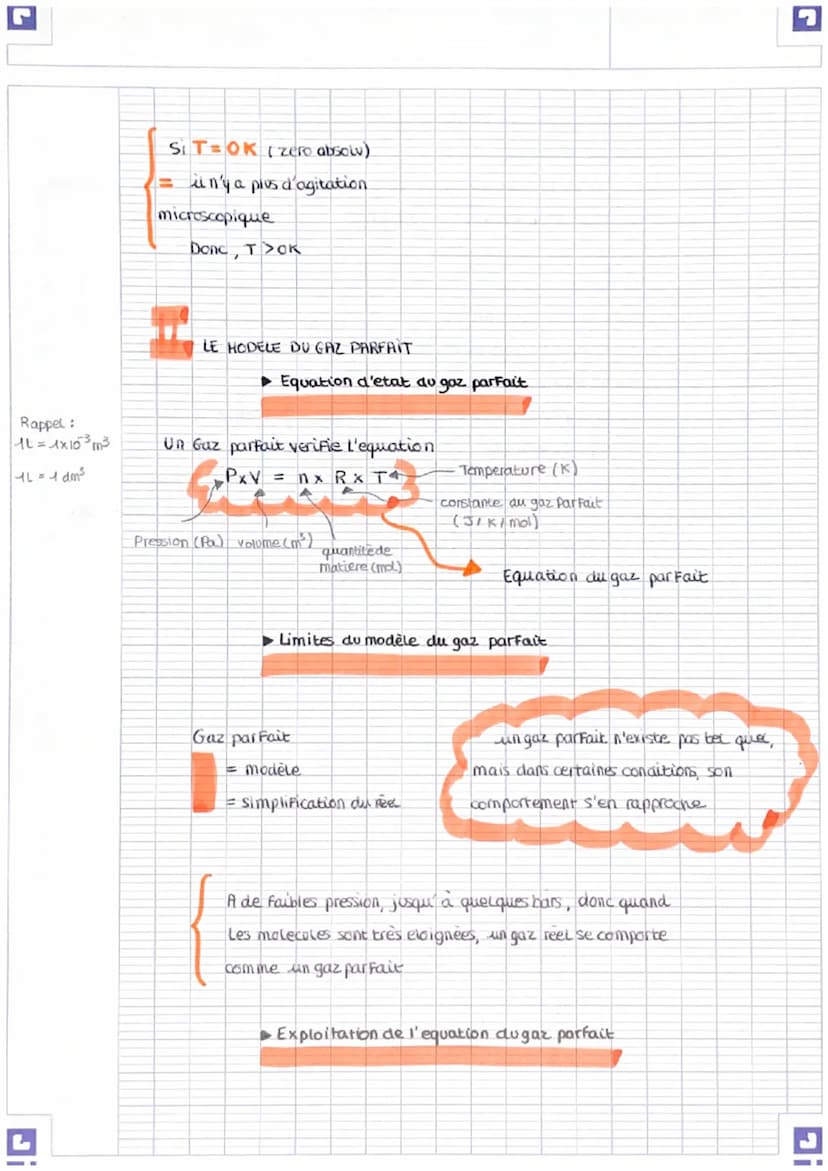 Si T = 0K (zéro absolu)
= il n'y a plus d'agitation
microscopique
Donc, T > 0K
II
LE MODELE DU GAZ PARFAIT
▶ Equation d'etat du gaz parfait
Rappel :
1L = 1x10⁻³ m³
1L = 1 dm³
Un Gaz parfait verifie l'equation
P x V = n x R x T
Temperature (K)
constante du gaz parfait
(J/K/mol)
Pression (Pa)
volume (m³)
quantité de
matiere (mol)
Equation du gaz parfait
▶ Limites du modèle du gaz parfait
Gaz parfait
= modèle
= simplification du réel
un gaz parfait n'existe pas tel quel,
mais dans certaines conditions, son
comportement s'en rapproche
A de faibles pression, jusqu'à quelques bars, donc quand
les molecules sont très eloignées, un gaz réel se comporte
comme un gaz parfait
▶ Exploitation de l'equation du gaz parfait